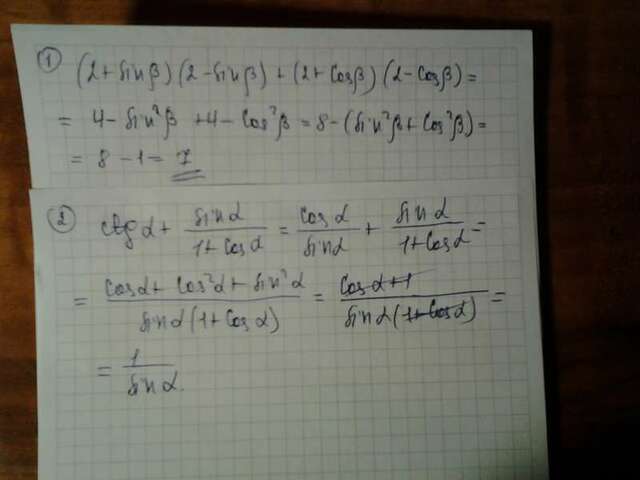 ① (2+sinβ)(2-sinβ)+(2+cosβ)(2-cosβ)=
= 4-sin²β +4-cos²β = 8-(sin²β+cos²β)=
= 8-1= 7
② ctgα+ sinα/(1+cosα) = cosα/sinα + sinα/(1+cosα) =
= (cosα+cos²α+sin²α)/(sinα(1+cosα)) = (cosα+1)/(sinα(1+cosα)) =
= 1/sinα.